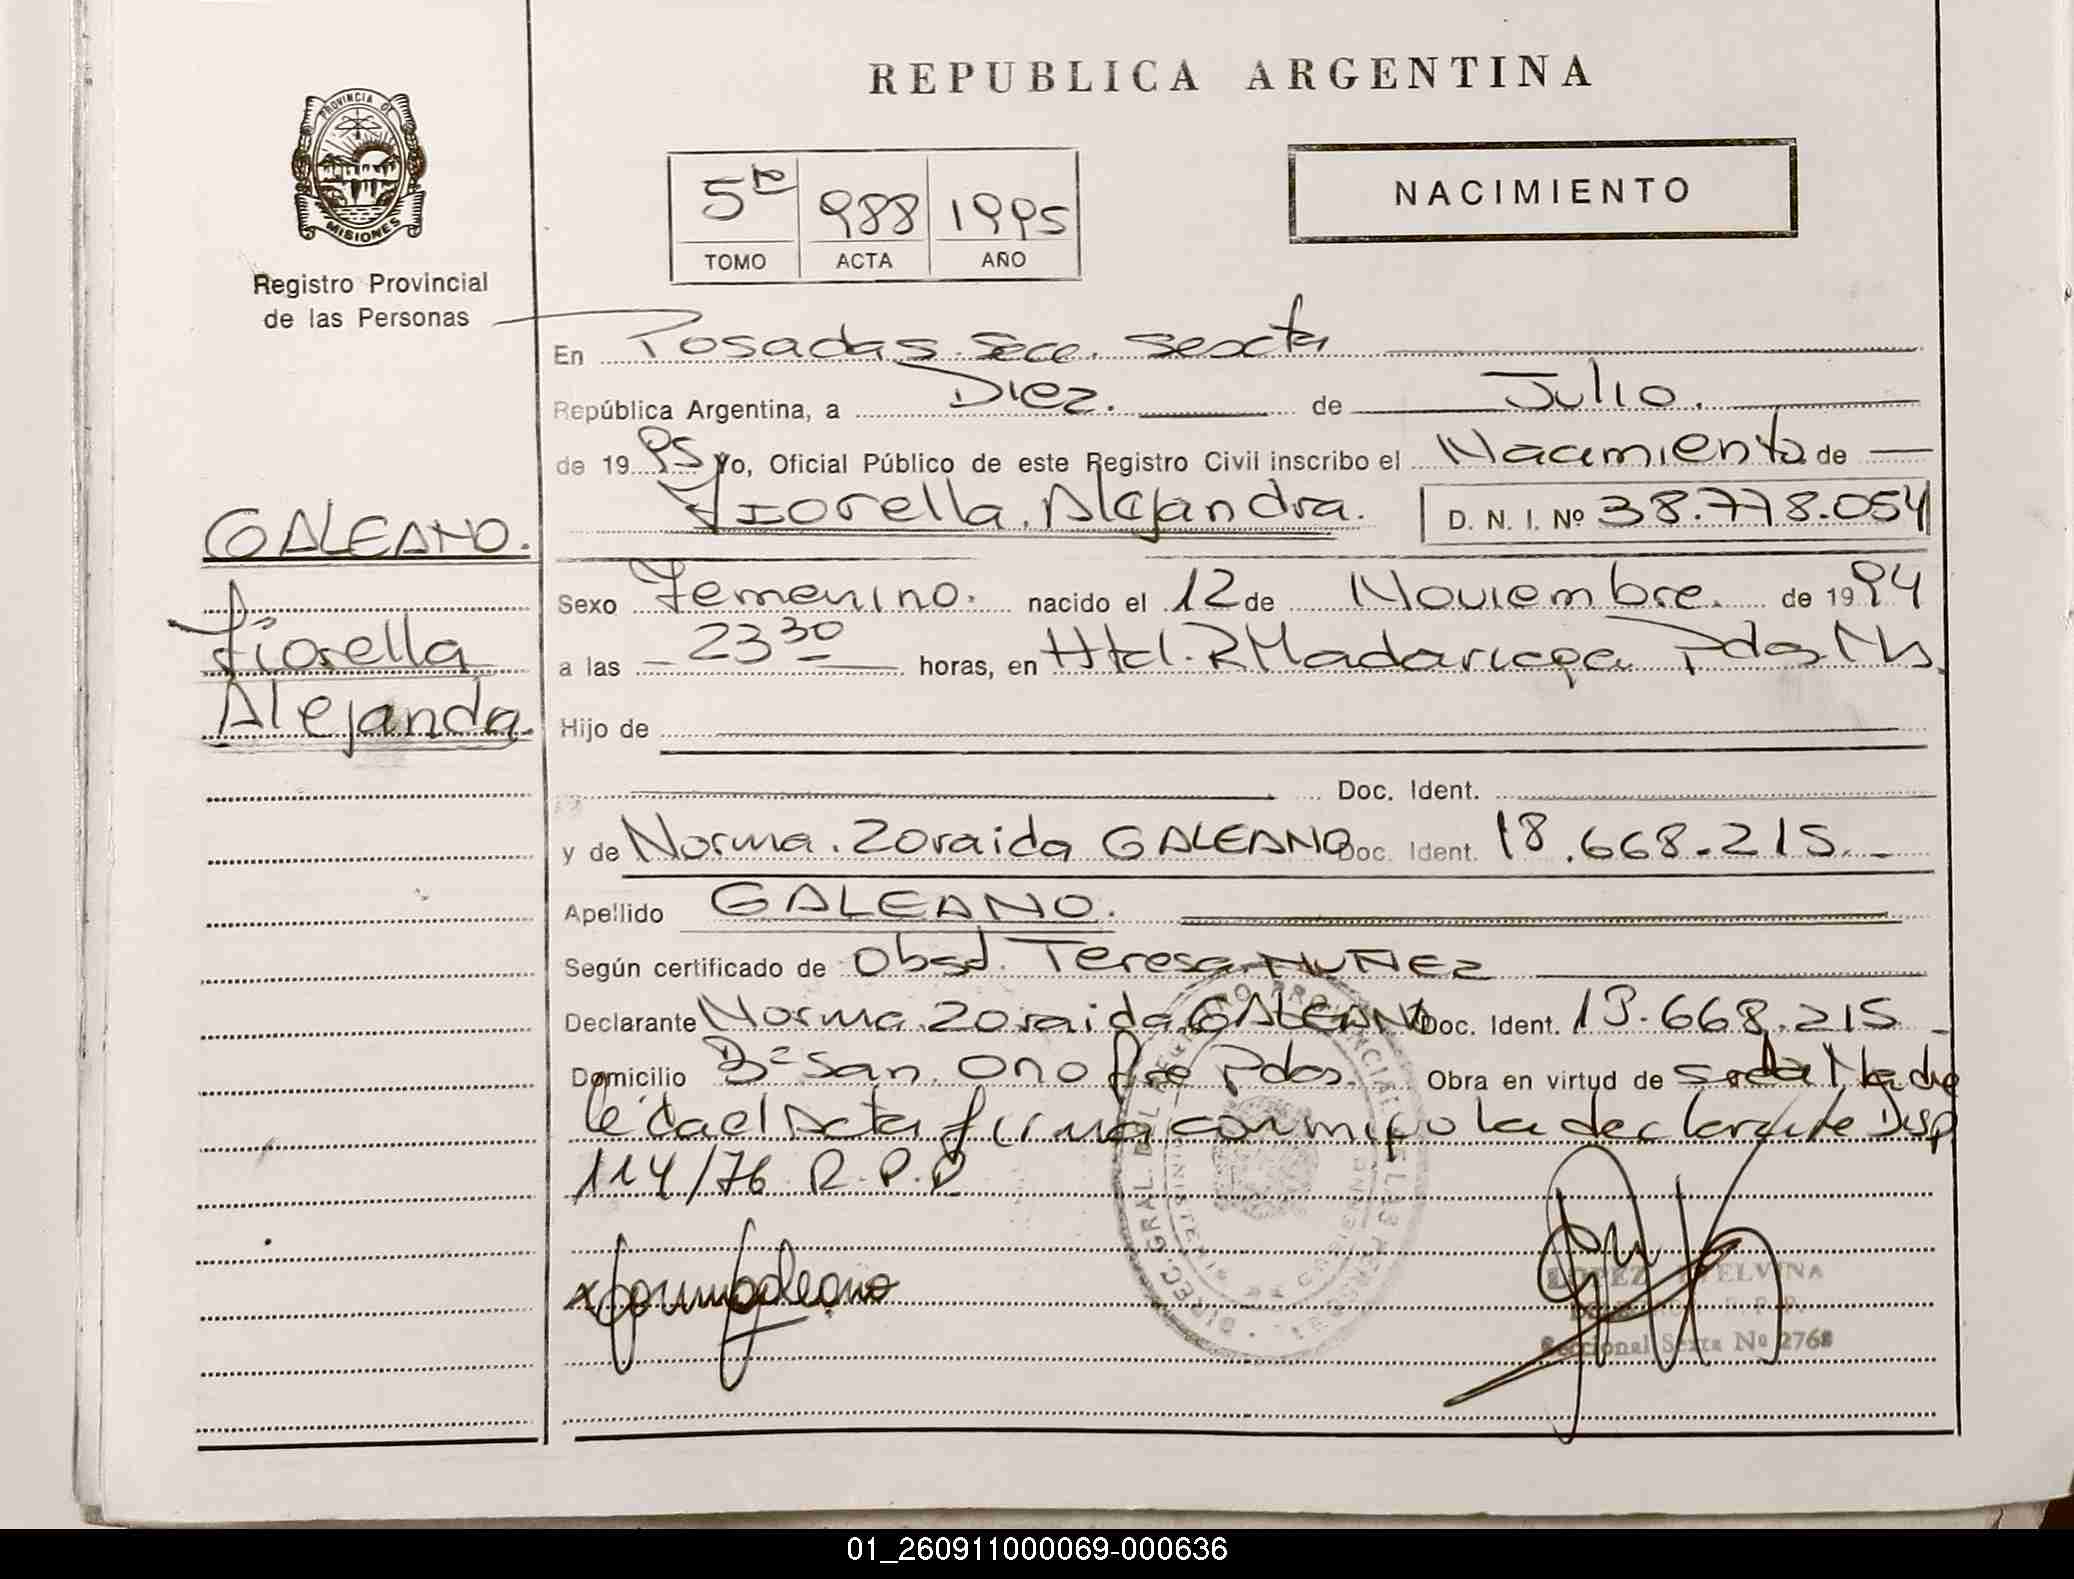 REPUBLICA ARGENTINA
PROVINCIA DE
MISIONES
Registro Provincial
de las Personas
5to 988 1995
TOMO ACTA AÑO
NACIMIENTO
GALEANO.
Fiorella
Alejanda.
En Posadas. Secc. Sexcta
República Argentina, a Diez. de Julio.
de 1995 Yo, Oficial Público de este Registro Civil inscribo el Nacimiento de
Fiorella. Alejandra. D. N. I. Nº 38.778.054
Sexo Femenino. nacido el 12 de Noviembre. de 1994
a las 23 30 horas, en Htal. R Madariaga Pdas Ms.
Hijo de
Doc. Ident.
y de Norma. Zoraida GALEANO Doc. Ident. 18.668.215.
Apellido GALEANO.
Según certificado de Obsd. Teresa NUÑEZ
Declarante Norma. Zoraida GALEANO Doc. Ident. 18.668.215
Domicilio Bº San. Onofre Pdas. Obra en virtud de ser la Madre
leida el Acta firma conmigo la declarante Disp
114/76 R.P.P
LOPEZ ELVINA
R. P. P.
Seccional Sexta Nº 2768
01_260911000069-000636